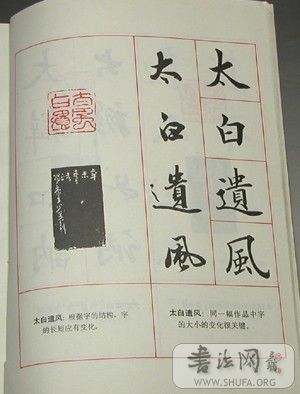 太白遺風
太白遺風
太白遗风：同一幅作品中字
的大小的变化很关键。
太白遗风：根据字的结构，字
的长短应有变化。
太白遺風
书法网
WWW.SHUFA.ORG